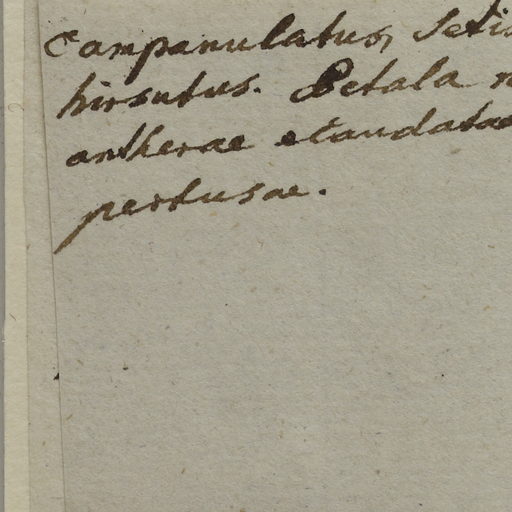 Campanulatus, Setis
hirsutus. Petala
antherae ecaudatae
pertusae.